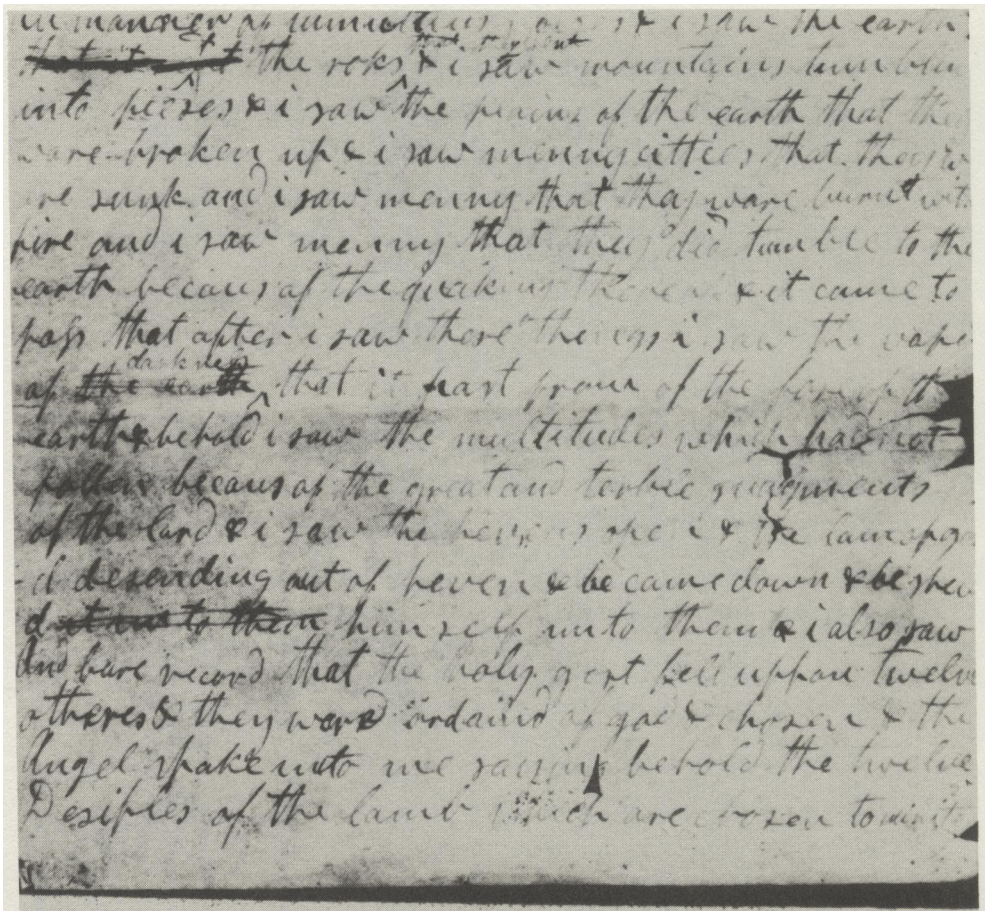 in manner of tumultious & i saw the earth
that it the roks that they rent & i saw mountains tumblin
into pieses & i saw the plains of the earth that they
ware broken up & i saw menny citties that they w
are sunk and i saw menny that thay ware burnt with
fire and i saw menny that they did tumble to the
earth becaus of the quaking thereof & it came to
pass that after i saw these things i saw the vape
of the earth darkness that it past from of the face of th
earth & behold i saw the multitudes which had not
fallen becaus of the great and terble judgments
of the Lord & i saw the hevens open & the lam of go
d desending out of heven & he came down & he shew
d unto them himself unto them & i also saw
And bare record that the holy gost fell uppon twelve
otheres & they ware ordaind of god & chosen & the
Angel spake unto me saying behold the twelve
Desiples of the lamb which are chosen to minis